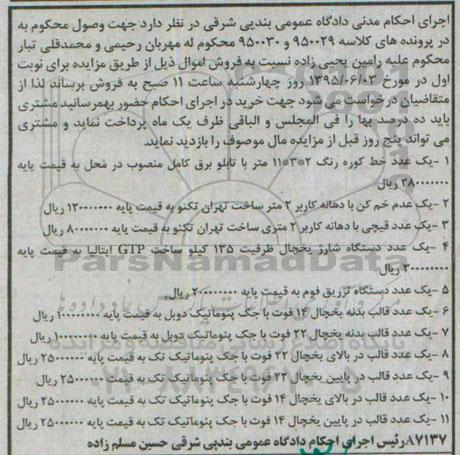 اجرای احکام مدنی دادگاه عمومی بندپی شرقی در نظر دارد جهت وصول محکوم به
در پرونده های کلاسه ۹۵۰۰۲۹ و ۹۵۰۰۳۰ محکوم له مهربان رحیمی و محمدقلی تبار
محکوم علیه رامین یحیی زاده نسبت به فروش اموال ذیل از طریق مزایده برای نوبت
اول در مورخ ۱۳۹۵/۰۶/۰۳ روز چهارشنبه ساعت ۱۱ صبح به فروش برساند لذا از
متقاضیان درخواست می شود جهت خرید در اجرای احکام حضور بهم رسانید مشتری
باید ده درصد بها را فی المجلس و الباقی ظرف یک ماه پرداخت نماید و مشتری
می تواند پنج روز قبل از مزایده مال موصوف را بازدید نماید.
۱ -یک عدد خط کوره رنگ ۲*۳*۱۱ متر با تابلو برق کامل منصوب در محل به قیمت پایه
ریال
۲ -یک عدم خم کن با دهانه کاربر ۲ متر ساخت تهران تکنو به قیمت پایه ریال
۳ -یک عدد قیچی با دهانه کاربر ۲ متری ساخت تهران تکنو به قیمت پایه ریال
۴ -یک عدد دستگاه شارژ یخچال ظرفیت ۱۳۵ کیلو ساخت GTP ایتالیا به قیمت پایه
ریال
۵ -یک عدد دستگاه تزریق فوم به قیمت پایه ریال
۶ -یک عدد قالب بدنه یخچال ۱۴ فوت با جک پنوماتیک دوبل به قیمت پایه ریال
۷ -یک عدد قالب بدنه یخچال ۲۲ فوت با جک پنوماتیک دوبل به قیمت پایه ریال
۸ -یک عدد قالب در بالای یخچال ۲۲ فوت با جک پنوماتیک تک به قیمت پایه ریال
۹ -یک عدد قالب در پایین یخچال ۲۲ فوت با جک پنوماتیک تک به قیمت پایه ریال
۱۰ -یک عدد قالب در بالای یخچال ۱۴ فوت با جک پنوماتیک تک به قیمت پایه ریال
۱۱ -یک عدد قالب در پایین یخچال ۱۴ فوت با جک پنوماتیک تک به قیمت پایه ریال
۸۷۱۳۷ رئیس اجرای احکام دادگاه عمومی بندپی شرقی حسین مسلم زاده
ParsNamadData